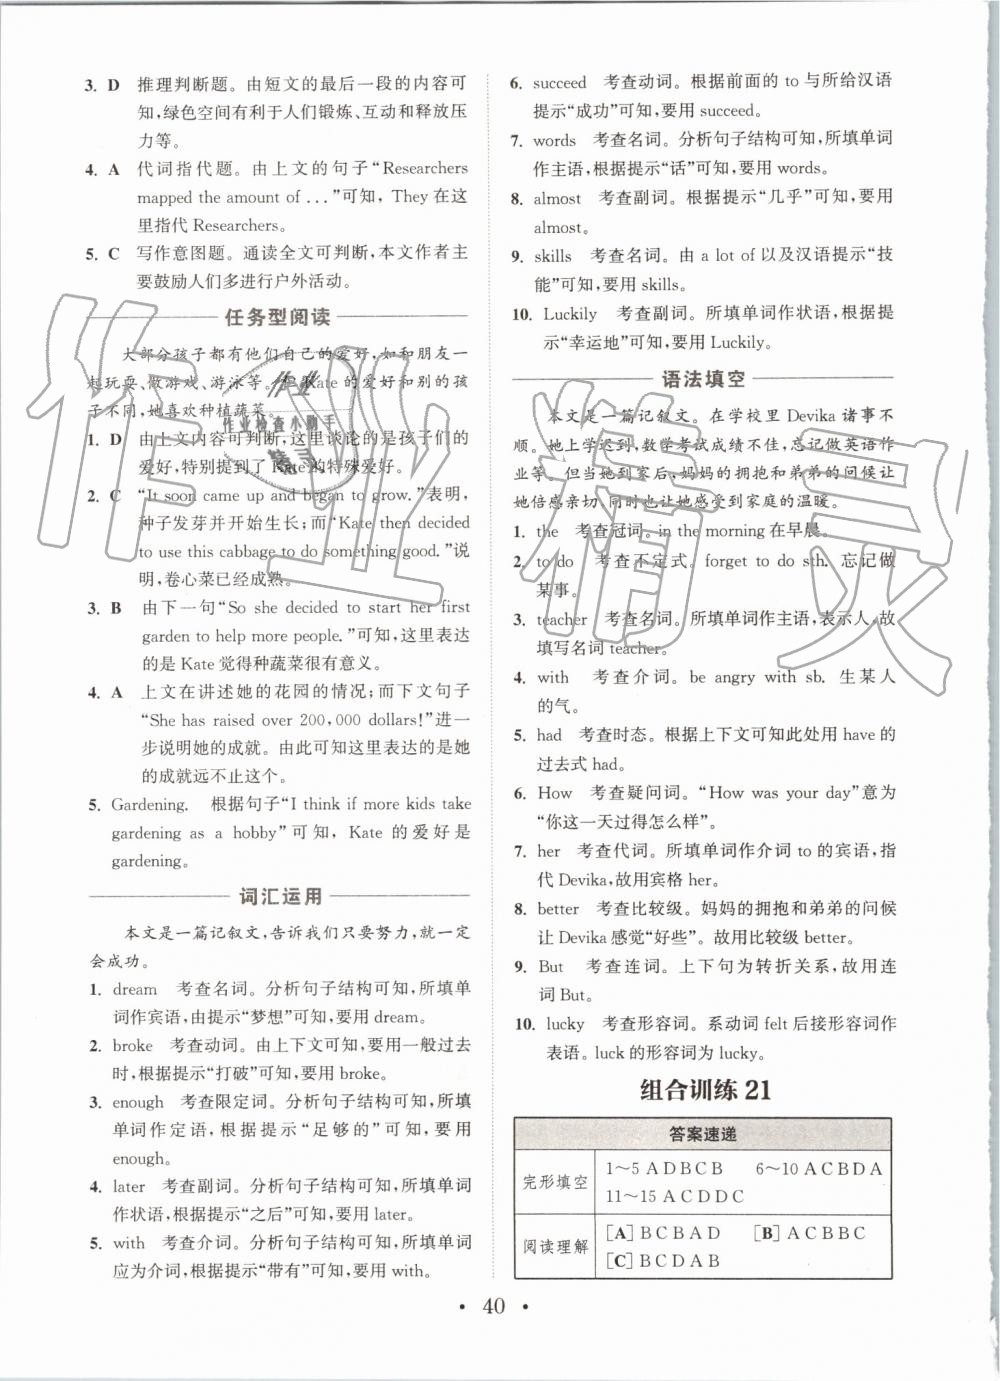 3. D 推理判断题。由短文的最后一段的内容可
知,绿色空间有利于人们锻炼、互动和释放压
力等。
4. A 代词指代题。由上文的句子“Researchers
mapped the amount of ...”可知,They 在这
里指代 Researchers。
5. C 写作意图题。通读全文可判断,本文作者主
要鼓励人们多进行户外活动。
任务型阅读
大部分孩子都有他们自己的爱好,如和朋友一
起玩耍、做游戏、游泳等。但 Kate 的爱好和别的孩
子不同,她喜欢种植蔬菜。
1. D 由上文内容可判断,这里谈论的是孩子们的
爱好,特别提到了 Kate 的特殊爱好。
2. C “It soon came up and began to grow.”表明,
种子发芽并开始生长;而“Kate then decided
to use this cabbage to do something good.”说
明,卷心菜已经成熟。
3. B 由下一句“So she decided to start her first
garden to help more people.”可知,这里表达
的是 Kate 觉得种蔬菜很有意义。
4. A 上文在讲述她的花园的情况;而下文句子
“She has raised over 200,000 dollars!”进一
步说明她的成就。由此可知这里表达的是她
的成就远不止这个。
5. Gardening. 根据句子“I think if more kids take
gardening as a hobby”可知,Kate 的爱好是
gardening。
词汇运用
本文是一篇记叙文,告诉我们只要努力,就一定
会成功。
1. dream 考查名词。分析句子结构可知,所填单
词作宾语,由提示“梦想”可知,要用 dream。
2. broke 考查动词。由上下文可知,要用一般过去
时,根据提示“打破”可知,要用 broke。
3. enough 考查限定词。分析句子结构可知,所填
单词作定语,根据提示“足够的”可知,要用
enough。
4. later 考查副词。分析句子结构可知,所填单词
作状语,根据提示“之后”可知,要用 later。
5. with 考查介词。分析句子结构可知,所填单词
应为介词,根据提示“带有”可知,要用 with。
6. succeed 考查动词。根据前面的 to 与所给汉语
提示“成功”可知,要用 succeed。
7. words 考查名词。分析句子结构可知,所填单词
作主语,根据提示“话”可知,要用 words。
8. almost 考查副词。根据提示“几乎”可知,要用
almost。
9. skills 考查名词。由 a lot of 以及汉语提示“技
能”可知,要用 skills。
10. Luckily 考查副词。所填单词作状语,根据提
示“幸运地”可知,要用 Luckily。
语法填空
本文是一篇记叙文。在学校里 Devika 诸事不
顺。她上学迟到,数学考试成绩不佳,忘记做英语作
业等。但当她到家后,妈妈的拥抱和弟弟的问候让
她倍感亲切,同时也让她感受到家庭的温暖。
1. the 考查冠词。in the morning 在早晨。
2. to do 考查不定式。forget to do sth. 忘记做
某事。
3. teacher 考查名词。所填单词作主语,表示人,故
填写名词 teacher。
4. with 考查介词。be angry with sb. 生某人
的气。
5. had 考查时态。根据上下文可知此处用 have 的
过去式 had。
6. How 考查疑问词。“How was your day”意为
“你这一天过得怎么样”。
7. her 考查代词。所填单词作介词 to 的宾语,指
代 Devika,故用宾格 her。
8. better 考查比较级。妈妈的拥抱和弟弟的问候
让 Devika 感觉“好些”。故用比较级 better。
9. But 考查连词。上下句为转折关系,故用连
词 But。
10. lucky 考查形容词。系动词 felt 后接形容词作
表语。luck 的形容词为 lucky。
组合训练 21
答案速递
完形填空 1～5 A D B C B 6～10 A C B D A
11～15 A C D D C
阅读理解 [A] B C B A D [B] A C B B C
[C] B C D A B
• 40 •
作业精灵
作业
作业检查小助手
精灵